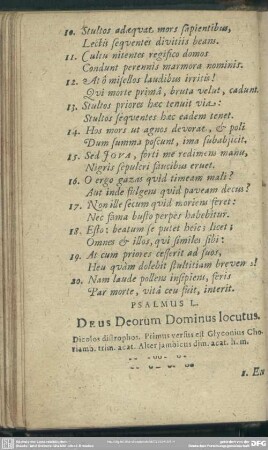 10. Stultos adæqvat mors sapientibus,
Lectis seqventes divitiis beans.
11. Cultu nitentes regifico domos
Condunt perennis marmora nominis.
12. At ô misellos laudibus irritis!
Qvi morte primâ, bruta velut, cadunt.
13. Stultos priores hæc tenuit via:
Stultos seqventes hæc eadem tenet.
14. Hos mors ut agnos devorat, & poli
Dum summa poscunt, ima subabjicit.
15. Sed JOVA, forti me redimens manu,
Nigris sepulcri faucibus eruet.
16. O ergo gazas qvid timeam mali?
Aut inde fulgens qvid paveam decus?
17. Non ille secum qvid moriens feret:
Nec fama busto perpes habebitur.
18. Esto: beatum se putet heic; licet;
Omnes & illos, qvi similes sibi:
19. At cum priores cesserit ad suos,
Heu qvàm dolebit stultitiam brevem!
20. Nam laude pollens insipiens, feris
Par morte, vitâ ceu fuit, interit.
PSALMUS L.
DEUS Deorum Dominus locutus.
Dicolos distrophos. Primus versus est Glyconius Cho-
riamb. trim. acat. Alter jambicus dim. acat. h. m.
1. En